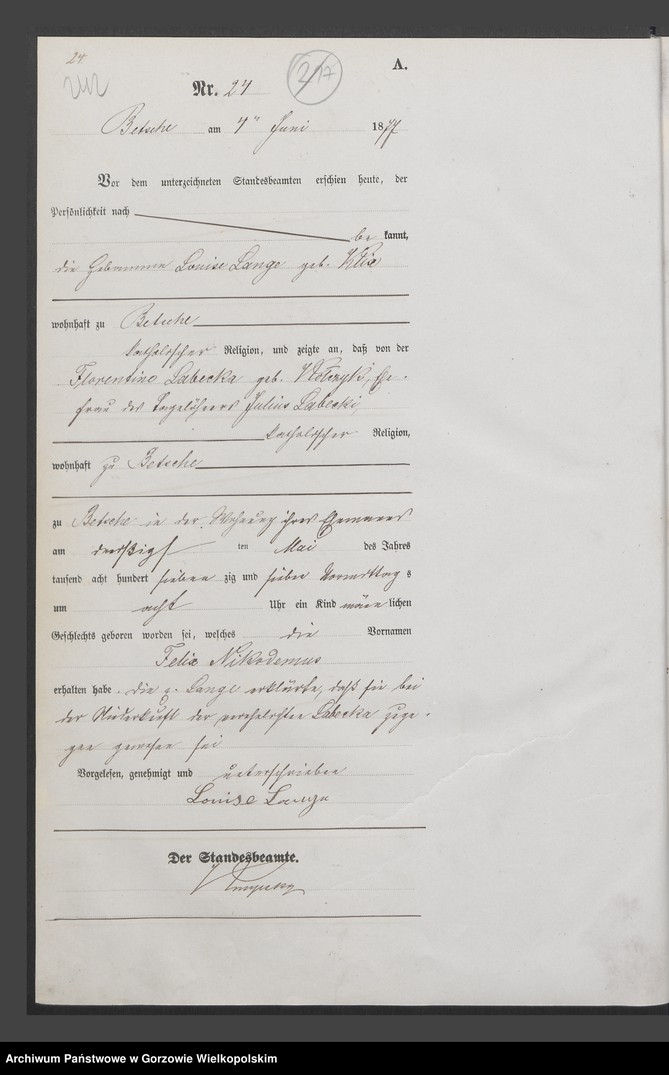 24.
A.
Nr. 24
217
Betsche am 4ten Juni 1877
Vor dem unterzeichneten Standesbeamten erschien heute, der
Persönlichkeit nach
be kannt,
die Hebamme Louise Lange geb. Klix
wohnhaft zu Betsche
katholischer Religion, und zeigte an, daß von der
Florentine Labecka geb. Ehe-
frau des Tagelöhners Julius Labecki,
katholischer Religion,
wohnhaft zu Betsche
zu Betsche in der Wohnung ihres Ehemannes
am dreißigs ten Mai des Jahres
tausend acht hundert sieben zig und sieben Vormittag s
um acht Uhr ein Kind männ lichen
Geschlechts geboren worden sei, welches die Vornamen
Felix Nikodemus
erhalten habe. Die p. Lange erklärte, daß sie bei
der Niederkunft der verehelichten Labecka zuge-
gen gewesen sei
Vorgelesen, genehmigt und unterschrieben
Louise Lange
Der Standesbeamte.
Archiwum Państwowe w Gorzowie Wielkopolskim